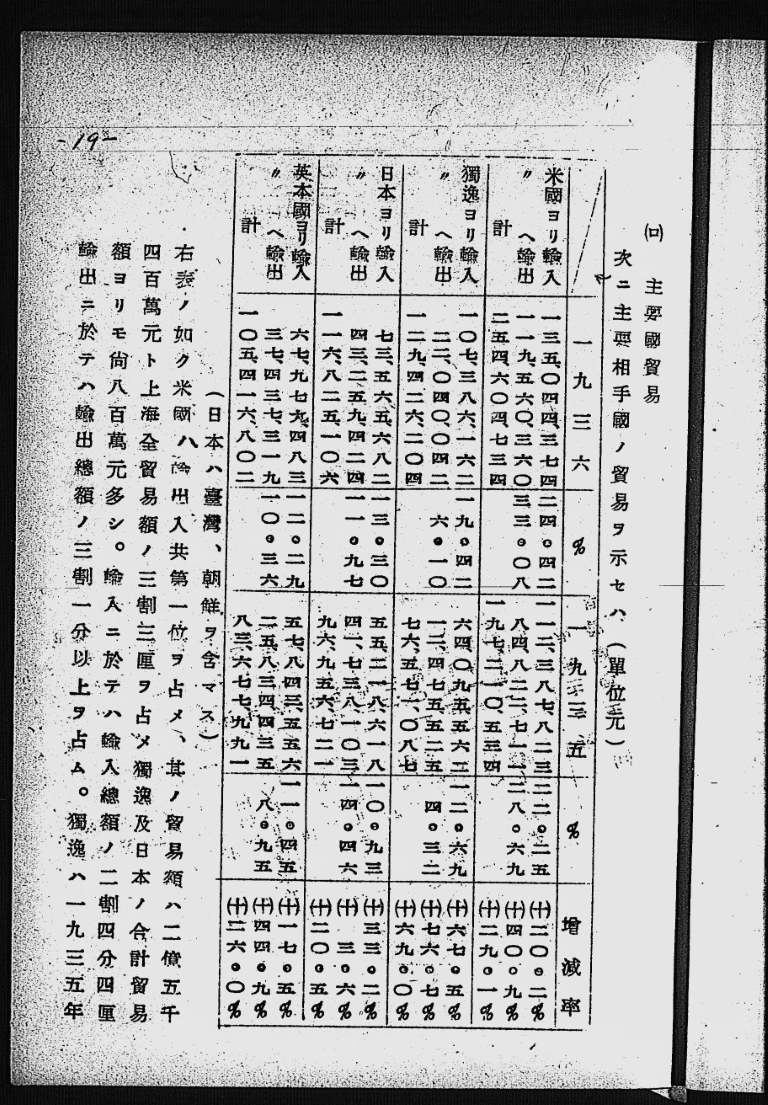 -19-
(ロ) 主要國貿易
次ニ主要相手國ノ貿易ヲ示セハ、(單位元)
一九三六 % 一九三五 % 增減率
米國ヨリ輸入 一三五、〇四四、三七四 二四。四二 一一二、三八七、八二三 二二。二五 (十)二〇。二%
〃 ヘ輸出 一一九、五六〇、三六〇 三三。〇八 八四、八二二、七一一 二八。六九 (十)四〇。九%
計 二五四、六〇四、七三四 一九七、二一〇、五三四 (十)二九。一%
獨逸ヨリ輸入 一〇七、三八六、一六二 一九。四二 六四、〇九五、五六二 一二。六九 (十)六七。五%
〃 ヘ輸出 二二、〇四〇、〇四二 六。一〇 一二、四七五、五二五 四。三二 (十)七六。七%
計 一二九、四二六、二〇四 七六、五七一、〇八七 (十)六九。〇%
日本ヨリ輸入 七三、五六五、六八二 一三。三〇 五五、二一八、六一八 一〇。九三 (十)三三。二%
〃 ヘ輸出 四三、二五九、四二四 一一。九七 四一、七三八、一〇三 一四。四六 (十)三。六%
計 一一六、八二五、一〇六 九六、九五六、七二一 (十)二〇。五%
英本國ヨリ輸入 六七、九七九、四八三 一二。二九 五七、八四三、五五六 一一。四五 (十)一七。五%
〃 ヘ輸出 三七、四三七、三一九 一〇。三六 二五、八三四、四三五 八。九五 (十)四四。九%
計 一〇五、四一六、八〇二 八三、六七七、九九一 (十)二六。〇%
(日本ハ臺灣、朝鮮ヲ含マス)
右表ノ如ク米國ハ輸出入共第一位ヲ占メ、其ノ貿易額ハ二億五千
四百萬元ト上海全貿易額ノ三割三厘ヲ占メ獨逸及日本ノ合計貿易
額ヨリモ尙八百萬元多シ。輸入ニ於テハ輸入總額ノ二割四分四厘
輸出ニ於テハ輸出總額ノ三割一分以上ヲ占ム。獨逸ハ一九三五年